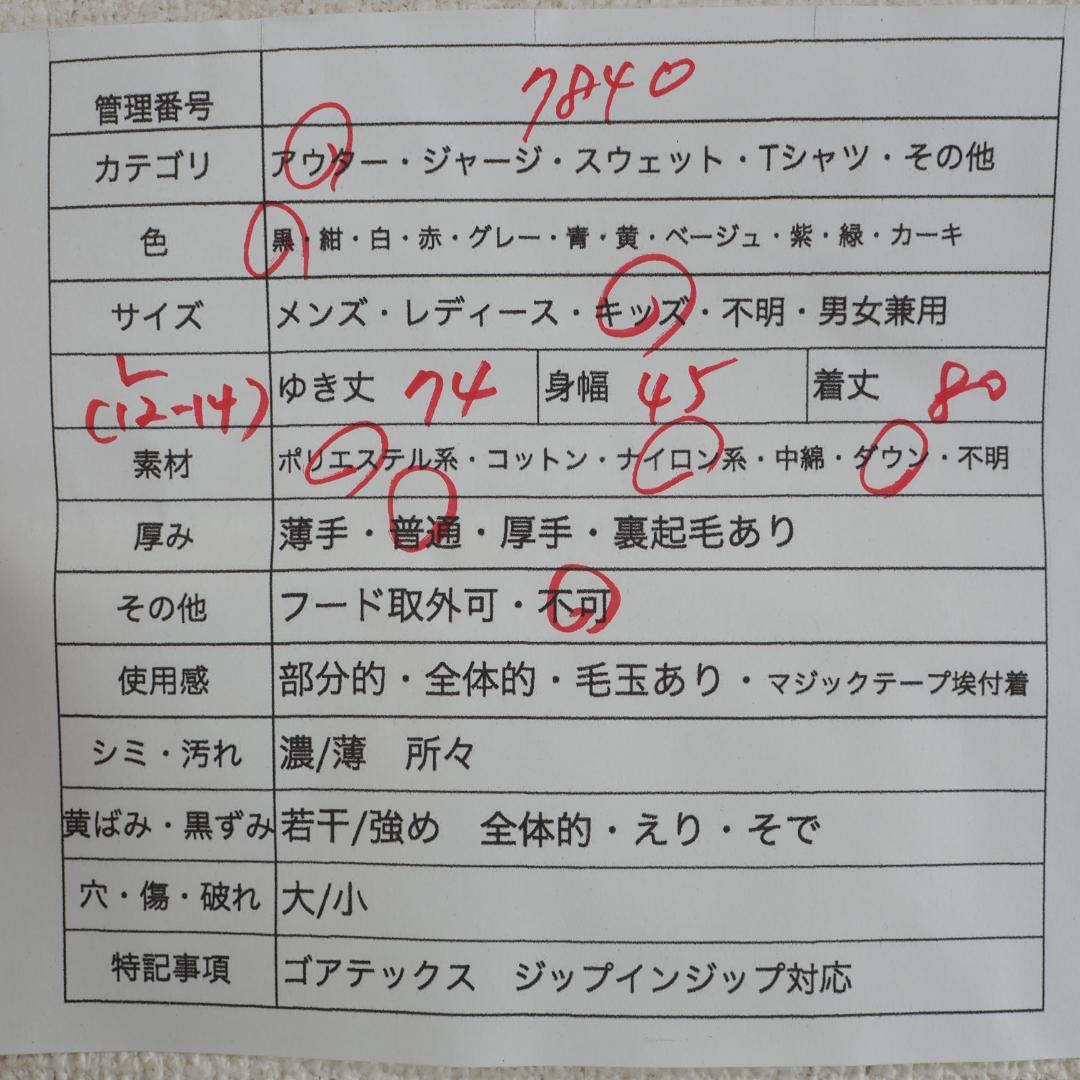 管理番号 7840
カテゴリ アウター・ジャージ・スウェット・Tシャツ・その他
色 黒・紺・白・赤・グレー・青・黄・ベージュ・紫・緑・カーキ
サイズ メンズ・レディース・キッズ・不明・男女兼用
L
(12-14) ゆき丈 74 身幅 45 着丈 80
素材 ポリエステル系・コットン・ナイロン系・中綿・ダウン・不明
厚み 薄手・普通・厚手・裏起毛あり
その他 フード取外可・不可
使用感 部分的・全体的・毛玉あり・マジックテープ埃付着
シミ・汚れ 濃/薄 所々
黄ばみ・黒ずみ 若干/強め 全体的・えり・そで
穴・傷・破れ 大/小
特記事項 ゴアテックス ジップインジップ対応